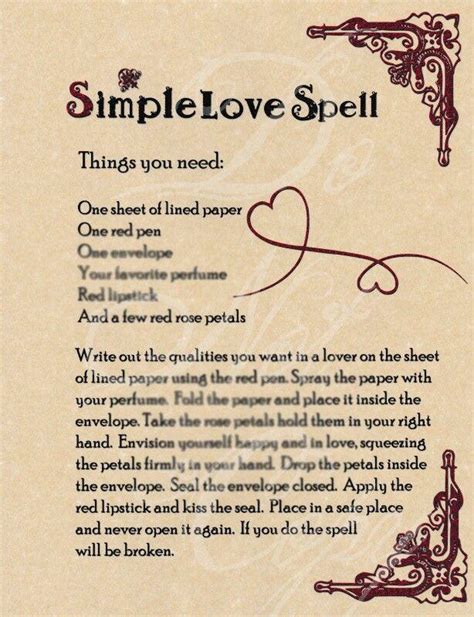 Simple Love Spell
Things you need:
One sheet of lined paper
One red pen
One envelope
Your favorite perfume
Red lipstick
And a few red rose petals
Write out the qualities you want in a lover on the sheet
of lined paper using the red pen. Spray the paper with
your perfume. Fold the paper and place it inside the
envelope. Take the rose petals hold them in your right
hand. Envision yourself happy and in love, squeezing
the petals firmly in your hand. Drop the petals inside
the envelope. Seal the envelope closed. Apply the
red lipstick and kiss the seal. Place in a safe place
and never open it again. If you do the spell
will be broken.